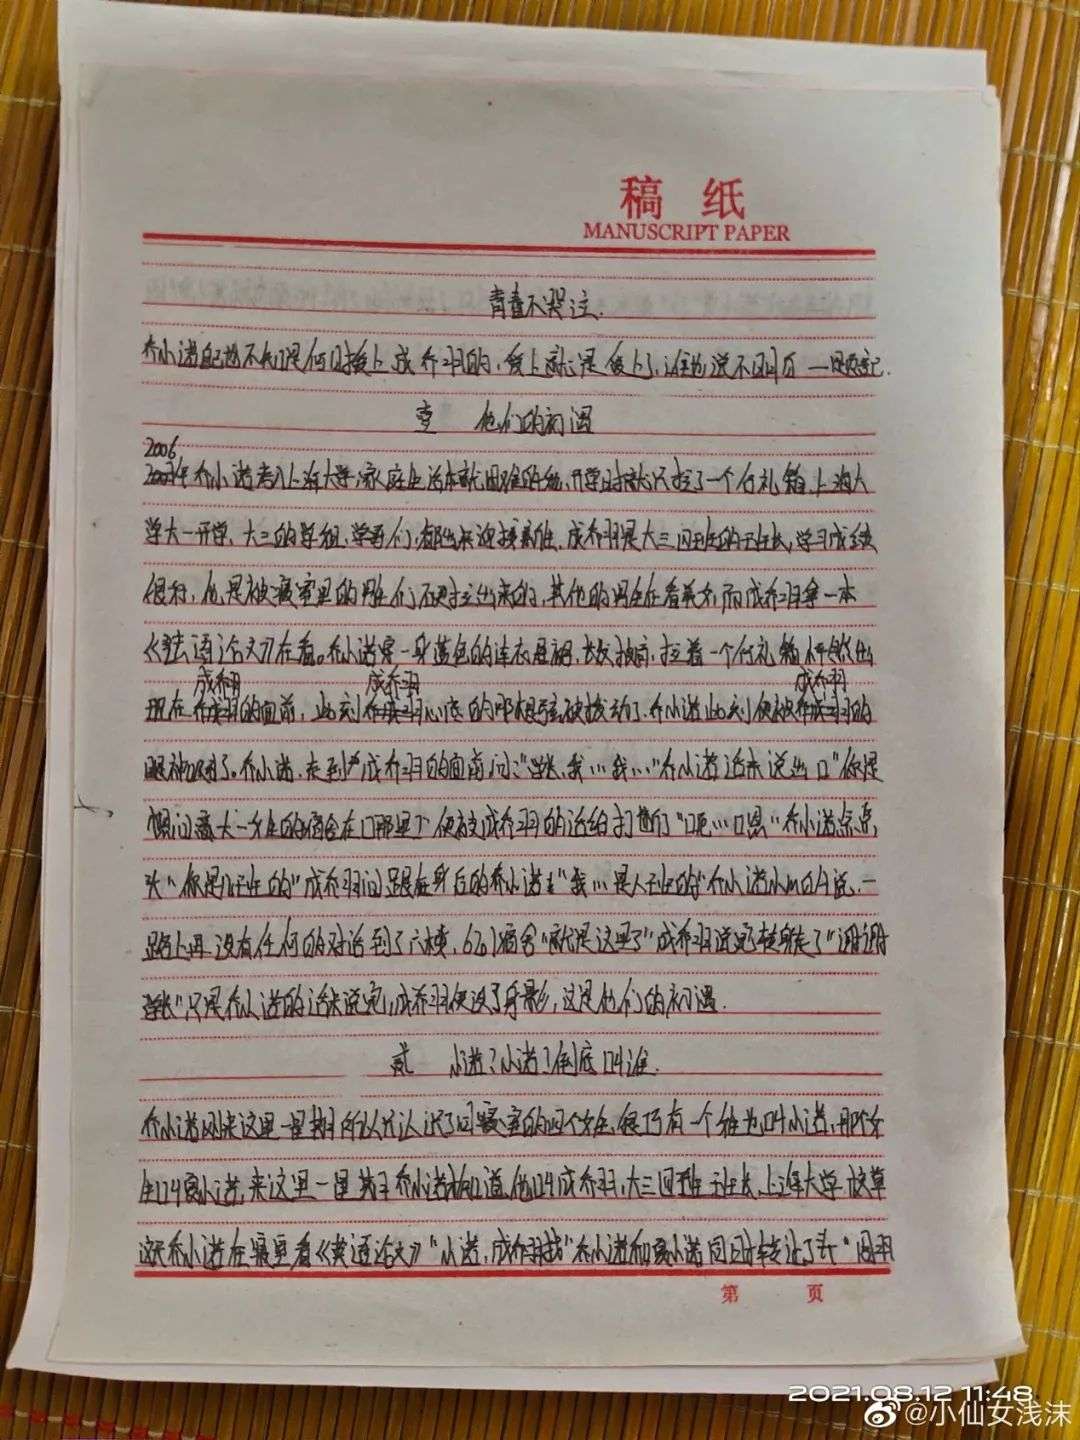 稿 纸
MANUSCRIPT PAPER
青春不哭泣.
乔小诺自己都不知道是何时爱上成乔羽的,爱上就是爱上了,谁也说不明白
壹 他们的初遇
2006
年乔小诺考入上海大学,家庭生活本就困难的她,开学时就只拉了一个行礼箱,上海大
学大一开学,大三的学姐,学哥们,都出来迎接新生,成乔羽是大三四班的班长,学习成绩
很好,他是被寝室里的男生们硬拉出来的,其他的男生在看美女而成乔羽拿一本
《英语论文》在看。乔小诺穿一身蓝色的连衣裙,长发披肩,拉着一个行礼箱出
成乔羽 成乔羽 成乔羽
现在的面前,此刻心底的那根弦被拨动了,乔小诺此刻便被的
眼神吸引了。乔小诺,走到成乔羽的面前问:"学长,我…我…"乔小诺话未说出口"你是
想问大一女生的宿舍在那里?"便被成乔羽的话给打断了"呃…嗯"乔小诺点点
头"你是几班的"成乔羽问跟在身后的乔小诺"我…是八班的"乔小诺小声的说,一
路上再没有任何的对话到了六楼,621宿舍"就是这里了"成乔羽说完转身走了"谢谢
学长"只是乔小诺的话未说完,成乔羽便没了身影,这是他们的初遇.
贰 小诺?小诺?倒底叫谁.
乔小诺刚来这里一星期所以只认识了同寝室的四个女生,恰巧有一个女生也叫小诺,那个女
生叫小诺,来这里一星期乔小诺知道他叫成乔羽,大三四班班长,上海大学校草
这天乔小诺在寝室看《英语论文》"小诺,成乔羽找"乔小诺和小诺同时转过了头"周羽
第 页
2021.08.12 11:48
@小仙女浅沫